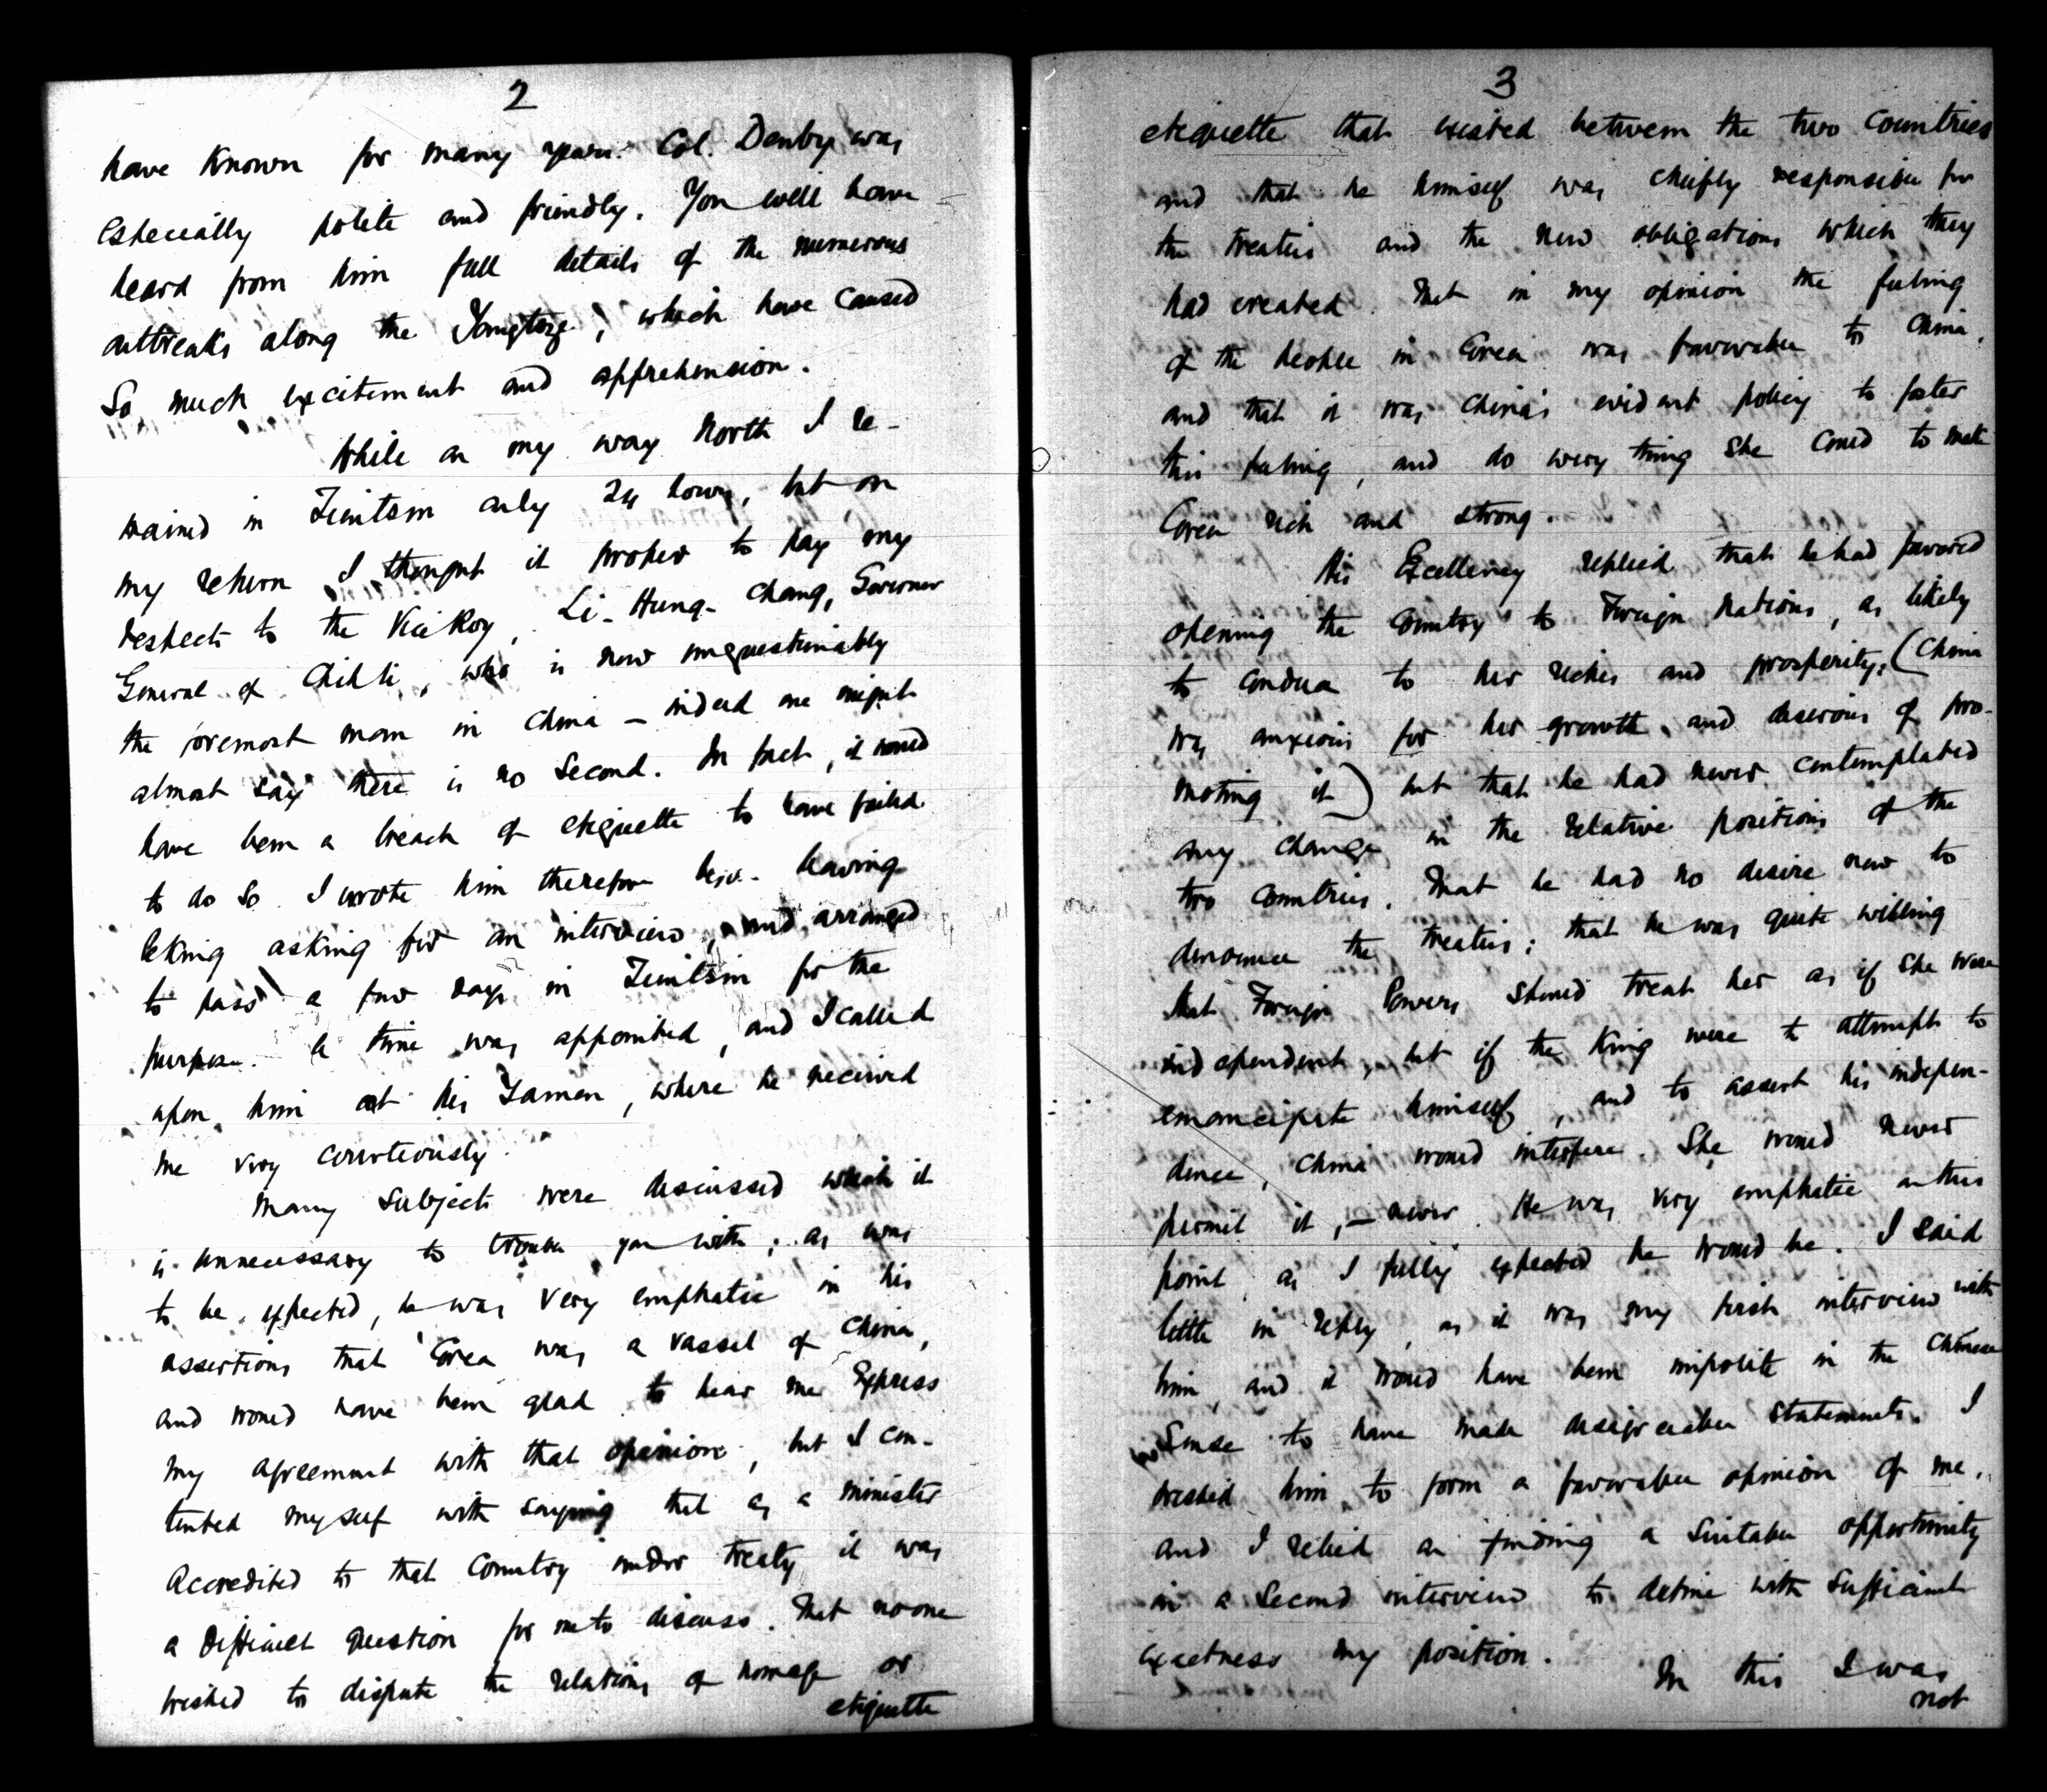 2
have known for many years. Col. Denby was
especially polite and friendly. You will have
heard from him full details of the numerous
outbreaks along the Yangtze, which have caused
so much excitement and apprehension.
While on my way North I re-
mained in Tientsin only 24 hours, but on
my return I thought it proper to pay my
respects to the Vice Roy, Li-Hung-Chang, Governor
General of Chihli, who is now unquestionably
the foremost man in China - indeed one might
almost say there is no second. In fact, it would
have been a breach of etiquette to have failed
to do so. I wrote him therefore before leaving
Peking asking for an interview, and arranged
to pass a few days in Tientsin for the
purpose. A time was appointed, and I called
upon him at his Yamen, where he received
me very courteously.
Many subjects were discussed which it
is unnecessary to trouble you with; as was
to be expected, he was very emphatic in his
assertions that Corea was a vassal of China,
and would have been glad to hear me express
my agreement with that opinion, but I con-
tented myself with saying that as a minister
accredited to that Country under treaty it was
a difficult question for me to discuss. That no one
wished to dispute the relations of homage or
etiquette
3
etiquette that existed between the two Countries
and that he himself was chiefly responsible for
the treaties and the new obligations which they
had created. That in my opinion the feeling
of the people in Corea was favorable to China,
and that it was China's evident policy to foster
this feeling, and do every thing she could to make
Corea rich and strong.
His Excellency replied that he had favored
opening the Country to Foreign Nations, as likely
to conduce to her riches and prosperity, (China
was anxious for her growth, and desirous of pro-
moting it) but that he had never contemplated
any change in the relative positions of the
two Countries. That he had no desire now to
denounce the treaties; that he was quite willing
that Foreign Powers should treat her as if she were
independent, but if the King were to attempt to
emancipate himself, and to assert his indepen-
dence, China would interfere. She would never
permit it, - never. He was very emphatic on this
point, as I fully expected he would be. I said
little in reply, as it was my first interview with
him, and it would have been impolite in the Chinese
sense to have made disagreeable statements. I
wished him to form a favorable opinion of me,
and I relied on finding a suitable opportunity
in a second interview to define with sufficient
exactness my position.
In this I was
not